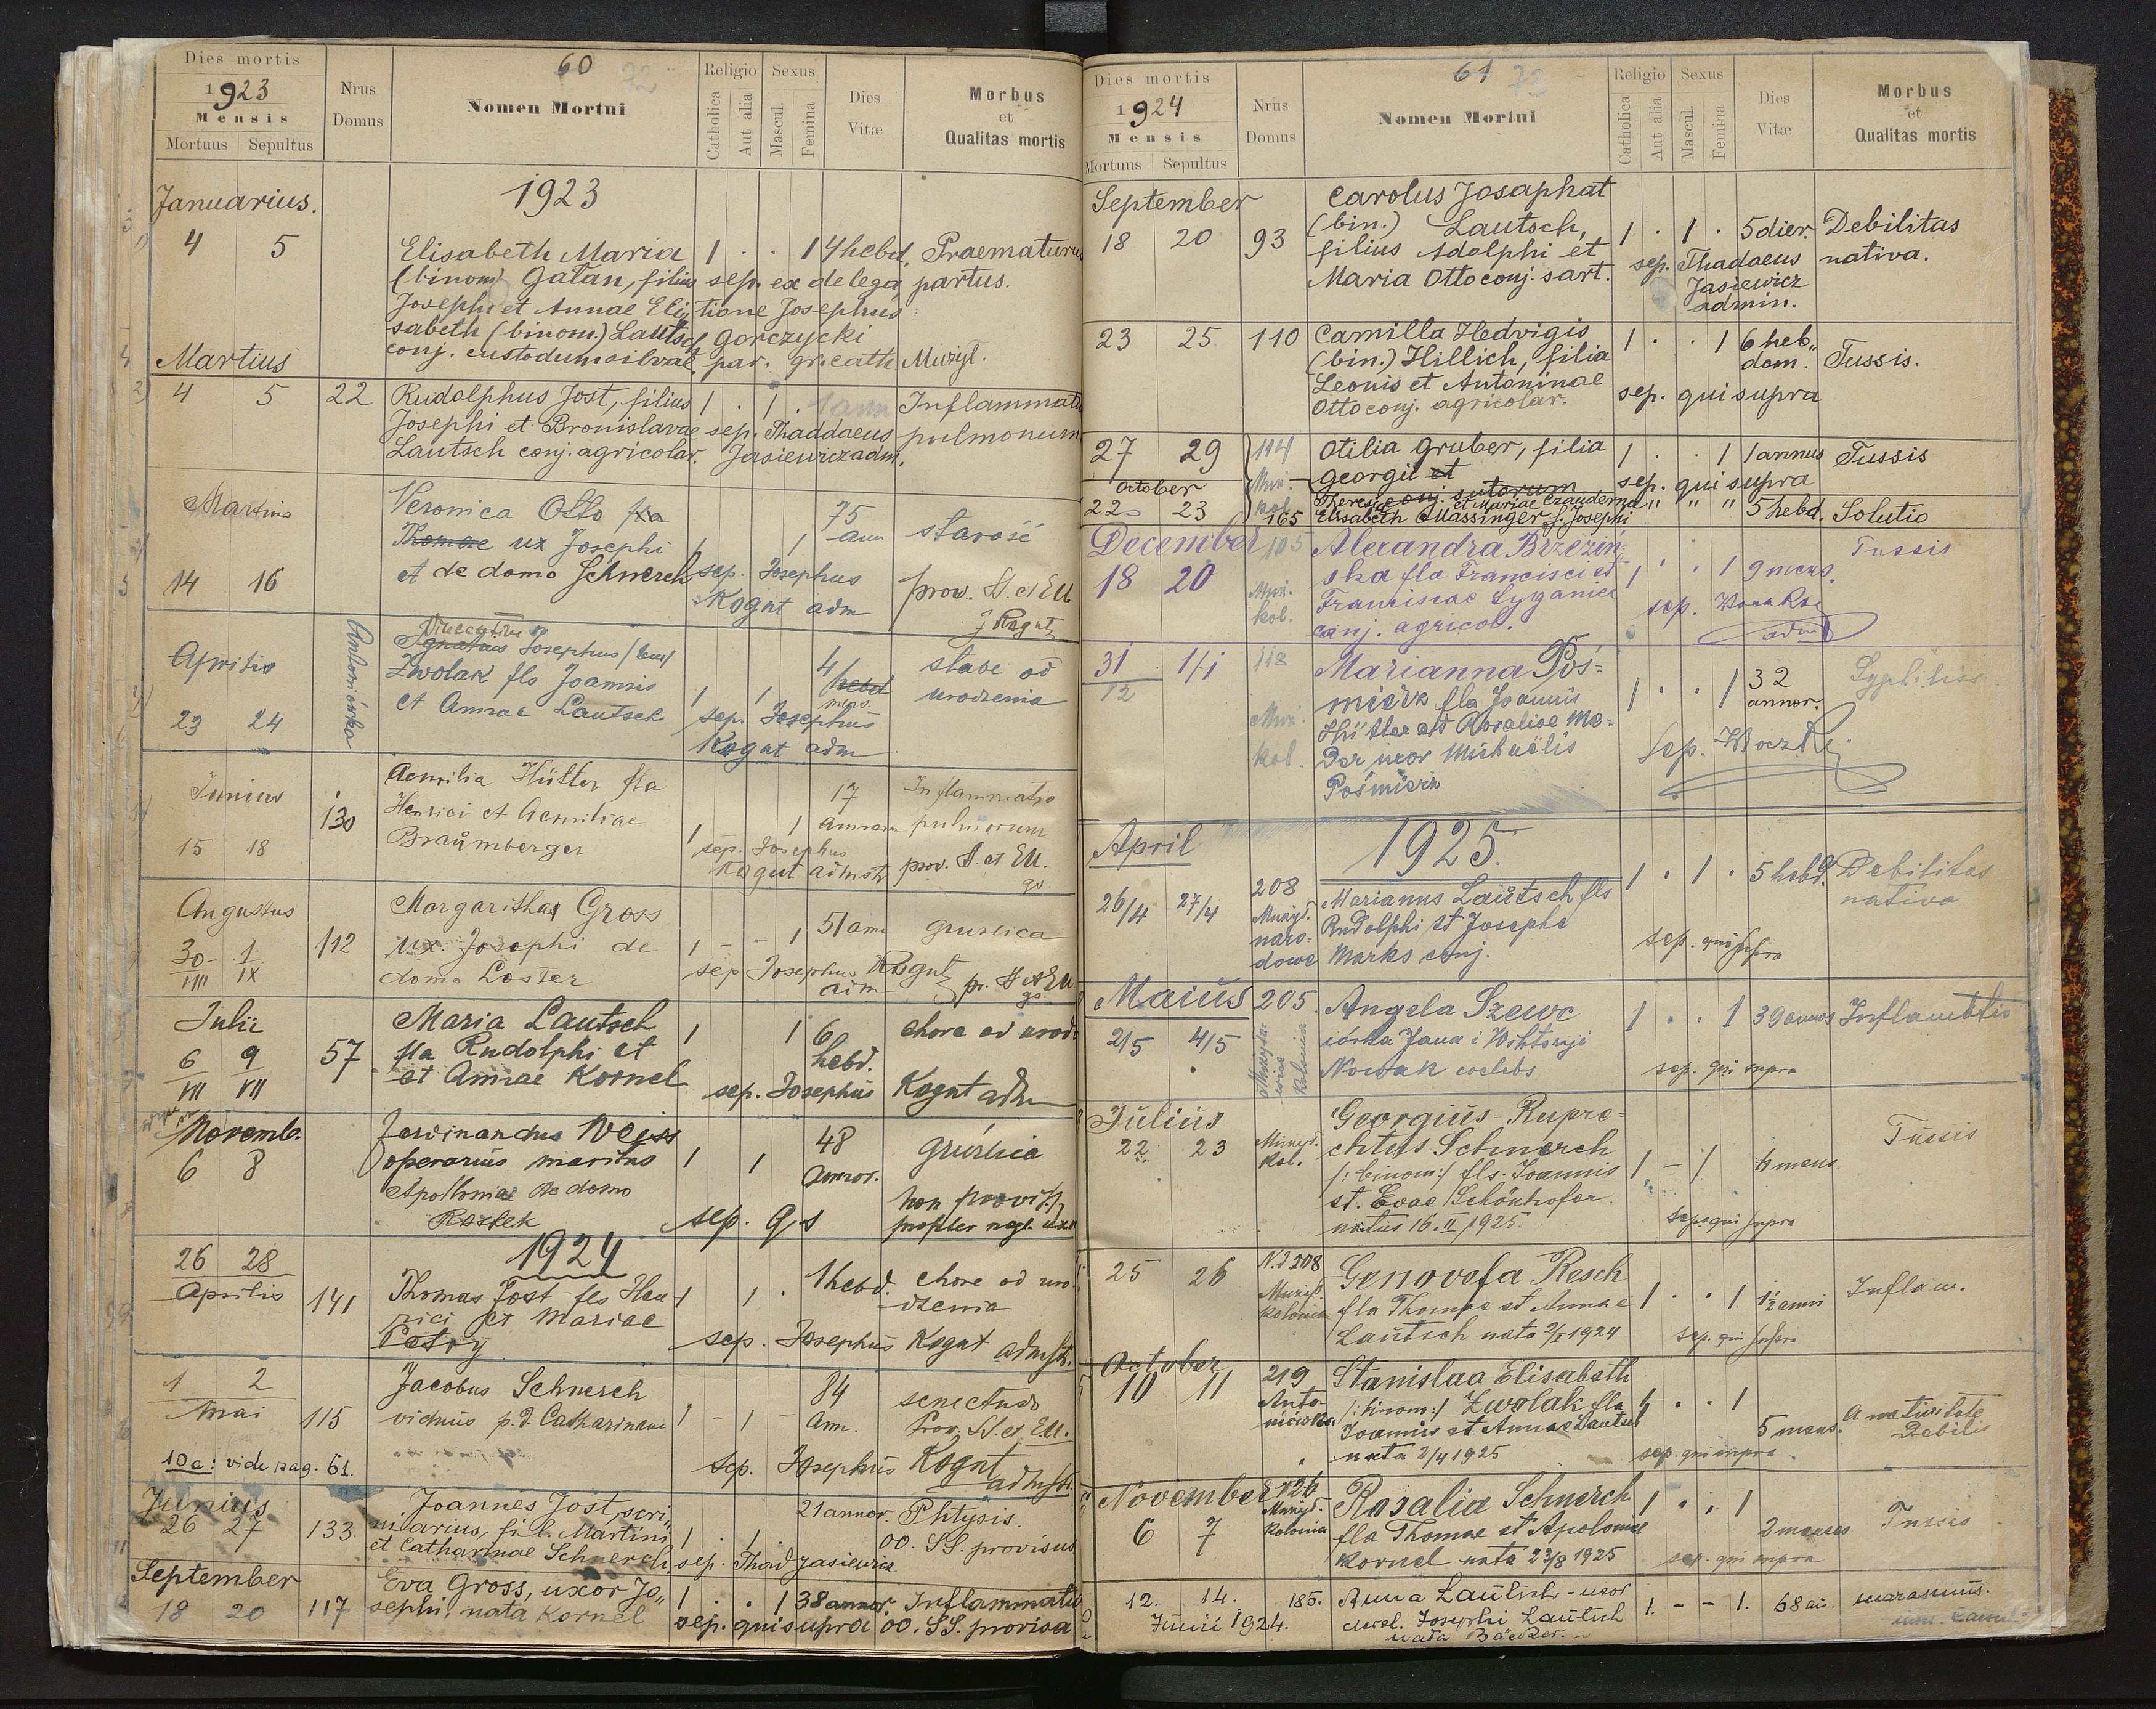 Dies mortis
1923
Mensis
Mortuus Sepultus
Nrus Domus
60
Nomen Mortui
Religio
Catholica
Aut alia
Sexus
Mascul.
Femina
Dies Vitæ
Morbus
et
Qualitas mortis
Januarius.
1923
4 5 Elisabeth Maria 1 . . 1 4 hebd. Praematurus
(binom) Galan, filius sep. ex delega partus.
Josephi et Annae Eli tione Josephus
sabeth (binom.) Lautsch Gorczycki
conj. custodum silvae. par. gr. cath Muzyl.
Martius
4 5 22 Rudolphus Jost, filius 1 . 1 . 1 ann Inflammatio
Josephi et Bronislavae sep. Thaddaeus pulmonum
Lautsch conj. agricolar. Jasiewicz adm.
Martius
14 16
Veronica Otto fla
Thomae ux Josephi 1 1 75 ann starość
et de domo Schnerch sep. Josephus
Kogut adm prov. SS. et EU.
J Kogut
Aprilis
23 24
Antoniówka
Vincentius
Ignatius Josephus /bin/
Zwolak fls Joannis 1 1 4 hebd mens. słabe od
et Annae Lautsch urodzenia
sep. Josephus
Kogut adm
Junius
15 18
130
Aemilia Hütter fla
Henrici et Aemiliae 1 1 17 annorum Inflammatio pulmorum
Braumberger
sep. Josephus
Kogut admstr prov. S. et EU.
gs.
Augustus
30 1
VIII IX
112
Margaritha Gross
ux Josephi de 1 - - 1 51 ann gruzlica
domo Loster
sep Josephus Kogut
adm pr. S et EU
gs.
Julii
6 9
VII VII
57
Maria Lautsch 1 1 6 hebd. chore od urodz
fla Rudolphi et
et Annae Kornel
sep. Josephus Kogut adm
Novemb.
6 8
Ferdinandus Weiss
operarius maritus 1 1 48 annor. gruźlica
Apolloniae de domo
Roztek
sep. gs
non provis.
propter negl. uxor
1924
26 28
Aprilis 141
Thomas Jost fls Hen- 1 1 . 1 hebd. chore od uro-
rici et Mariae dzenia
Petry
sep. Josephus Kogut admstr.
1 2
Mai 115
Jacobus Schnerch
viduus p. d. Catharinam 1 - 1 - 84 Ann. senectudo
Prov. SS. et EU.
sep. Josephus Kogut
admstr.
10a: vide pag. 61.
Junius
26 27 133.
Joannes Jost, scri-
niarius, fil. Martini 1 . 1 . 21 annor. Phtysis.
et Catharinae Schnerch, sep. Thad Jasiewicz OO. SS. provisus
September
18 20 117
Eva Gross, uxor Jo- 1 . . 1 38 annor. Inflammatio
sephi, nata Kornel sep. qui supra OO. SS. provisa
Dies mortis
1924
Mensis
Mortuus Sepultus
Nrus Domus
61
Nomen Mortui
Religio
Catholica
Aut alia
Sexus
Mascul.
Femina
Dies Vitæ
Morbus
et
Qualitas mortis
September
18 20 93
Carolus Josaphat
(bin.) Lautsch, 1 . 1 . 5 dier. Debilitas
filius Adolphi et sep. Thadaeus nativa.
Maria Otto conj. sart. Jasiewicz
admin.
23 25 110
Camilla Hedvigis 1 . . 1 6 heb-
(bin.) Hillich, filia dom. Tussis.
Leonis et Antoninae
Otto conj. agricolar. sep. qui supra
27 29 114
Otilia Gruber, filia 1 . . 1 1 annus Tussis
Georgii et sep. qui supra
conj. sutorum
et Mariae Czauderna
October
22 23 165 Elisabeth Massinger f. Josephi " " " 5 hebd. Solutio
December
18 20 105
Muz. kol.
Alexandra Brzeziń-
ska fla Francisci et 1 . . 1 9 mens. Tussis
Franciscae Cyganica sep.
conj. agricol. adm
31 1/1
12
118
Muz. kol.
Marianna Poś-
mierz fla Joannis 1 . . 1 32 annor. Syphilis
Hütter et Rosaliae Me-
der uxor Michaëlis sep.
Pośmierz
April
1925.
26/4 27/4
208 Muzyl. naro- dowe
Marianus Lautsch fls 1 . 1 . 5 hebd. Debilitas
Rudolphi et Josepha nativa
Marks conj. sep. qui supra
Maius
2/5 4/5
205.
Angela Szewc 1 . . 1 39 annos Inflamatio
córka Jana i Wiktorji
Nowak coelebs sep. qui supra
Julius
22 23
Muzyl. kol.
Georgius Rupre-
chtus Schnerch
/: binom:/ fls. Joannis 1 - 1 mens Tussis
et Evae Schönhofer.
natus 16. II 1925. sep. qui supra
25 26
N. d 208
Muzył. kolonia
Genovefa Resch
fla Thomae et Annae 1 . . 1 1½ anni Inflam.
Lautsch nata 1924 sep. qui supra
October
10 11
219
Antoniówka
Stanislaa Elisabeth
/: binom:/ Zwolak fla 1 . . 1
Joannis et Annae Lautsch 5 mens. A nativitate
Debilis
nata 2/4 1925 sep. qui supra
November
6 7
126
Muzył. kolonia
Rosalia Schnerch 1 . . 1
fla Thomae et Apoloniae 2 menses Tussis
Kornel nata 23/8 1925 sep. qui supra
12. 14.
Junii 1924.
185.
Anna Lautsch - uxor 1. - - 1. 68 an. marasmus.
Josephi Lautsch
nata